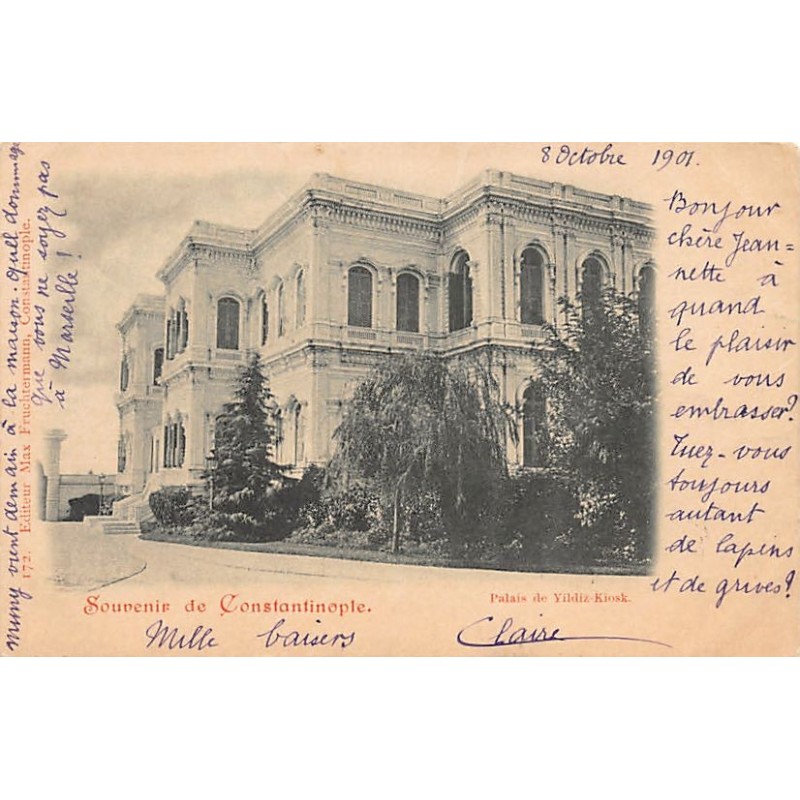 8 Octobre 1901.
Bonjour
chère Jean=
nette à
quand
le plaisir
de vous
embrasser?
Tuez-vous
toujours
autant
de lapins
et de grives?
Mille baisers Claire
Mumy vient demain à la maison. Quel dommage
que vous ne soyez pas
à Marseille!
172. Editeur Max Fruchtermann, Constantinople.
Souvenir de Constantinople.
Palais de Yildiz-Kiosk.